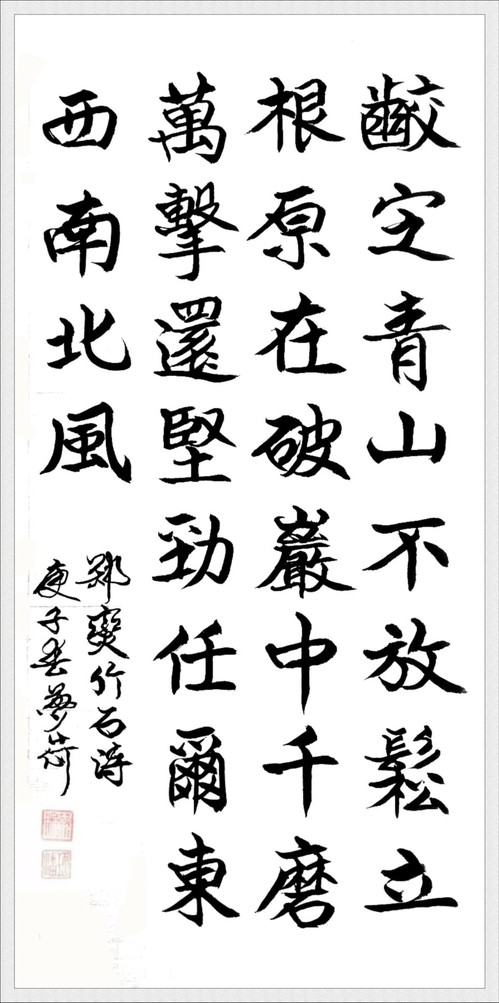 齩定青山不放鬆立
根原在破巖中千磨
萬擊還堅勁任爾東
西南北風
鄭燮竹石詩
庚子春夢荷